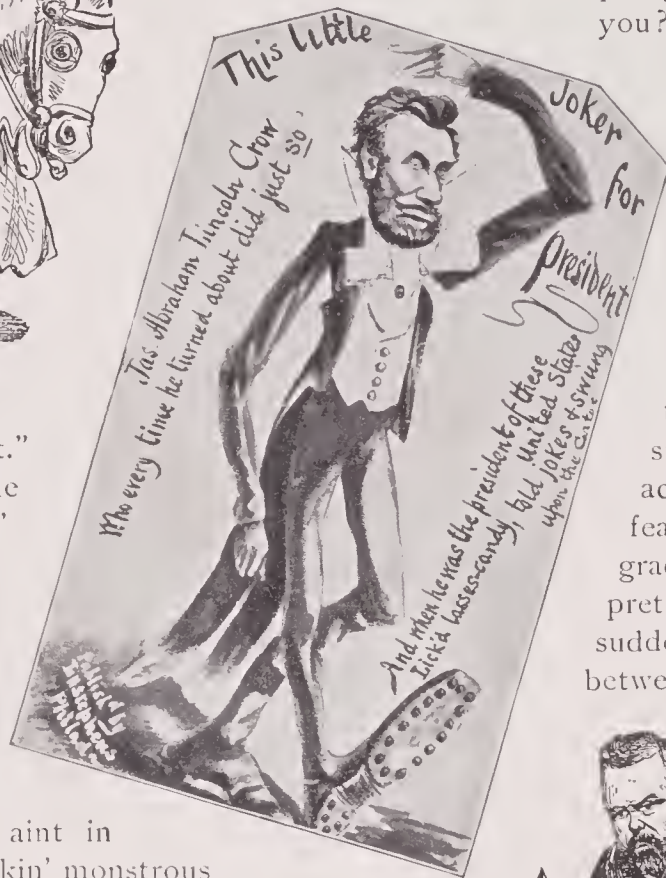 you?
This little
Joker
for
president
Jas. Abraham Lincoln Crow
Who every time he turned about did just so
And when he was the president of these
United States
Lick'd lasses-candy, told jokes & swung
upon the Gates
t.”
e
’
s
ac
fea
grac
pret
sudde
betwe
aint in
kin’ monstrous